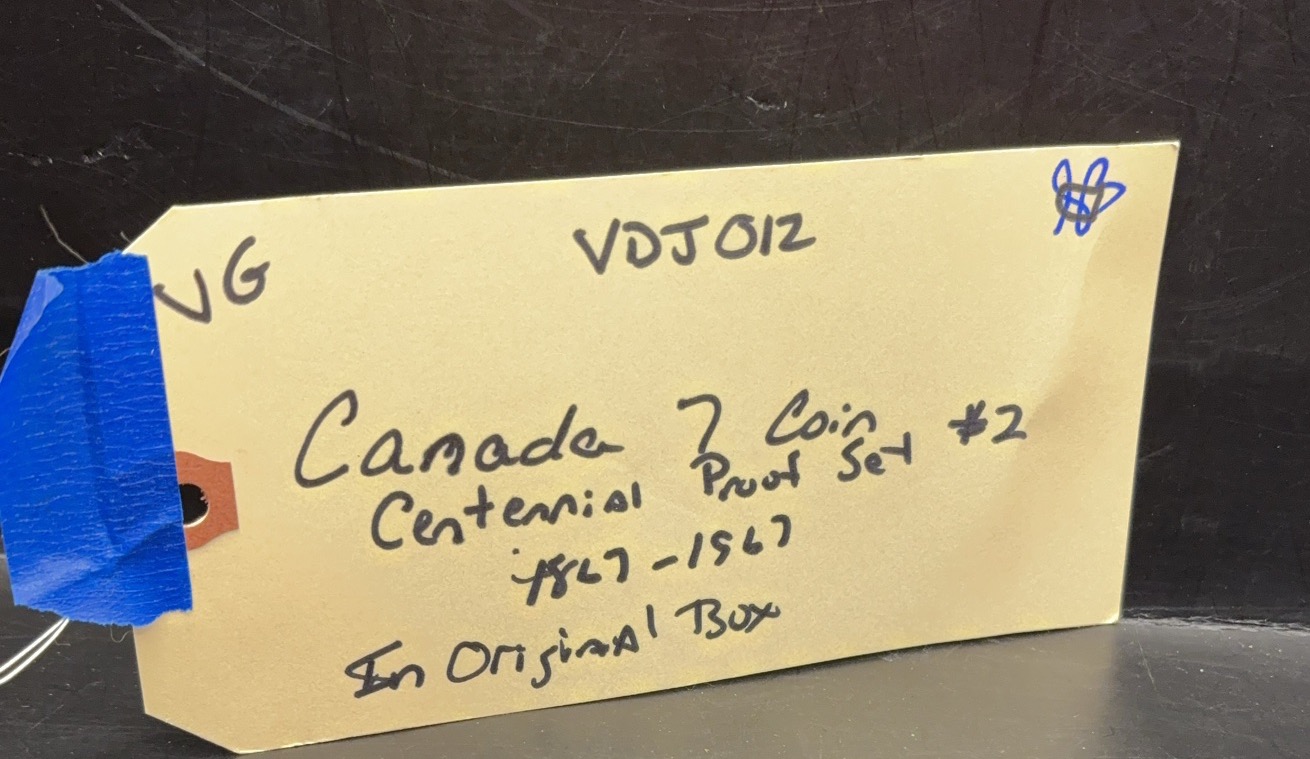 VG
VDJ012
Canada 7 Coin
Centennial Proof Set #2
1867-1967
In Original Box